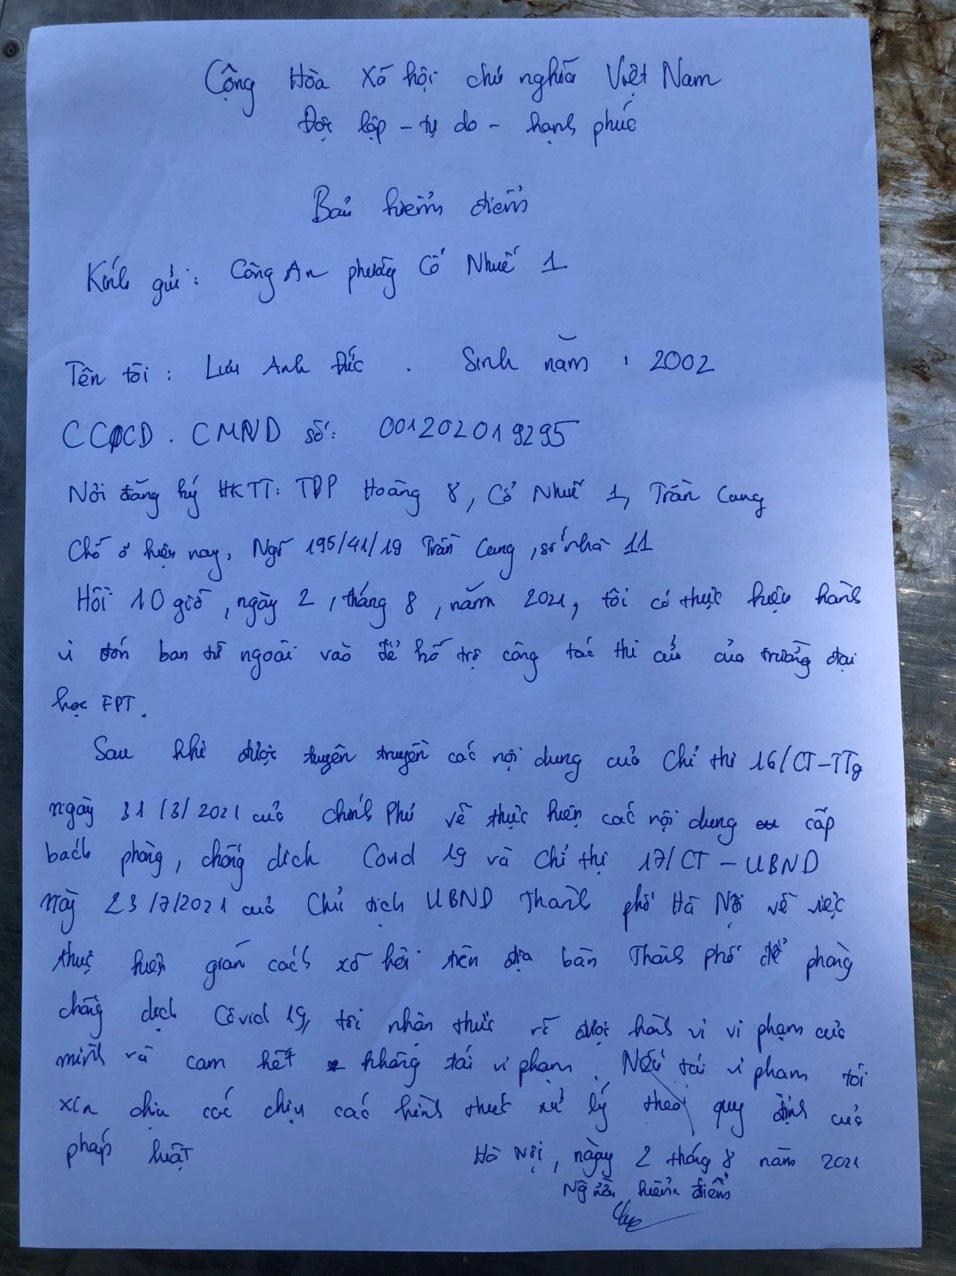 Cộng Hòa Xã hội chủ nghĩa Việt Nam
Độc lập - tự do - hạnh phúc
Bản kiểm điểm
Kính gửi: Công An phường Cổ Nhuế 1
Tên tôi: Lưu Anh Đức. Sinh năm: 2002
CCCD. CMND số: 001202019295
Nơi đăng ký HKTT: TDP Hoàng 8, Cổ Nhuế 1, Trần Cung
Chỗ ở hiện nay, Ngõ 195/41/19 Trần Cung, số nhà 11
Hồi 10 giờ, ngày 2, tháng 8, năm 2021, tôi có thực hiện hành
vi đón bạn từ ngoài vào để hỗ trợ công tác thi cử của trường đại
học FPT.
Sau khi được tuyên truyền các nội dung của Chỉ thị 16/CT-TTg
ngày 31/3/2021 của chính Phủ về thực hiện các nội dung cấp
bách phòng, chống dịch Covid 19 và Chỉ thị 17/CT-UBND
ngày 23/7/2021 của Chủ tịch UBND Thành phố Hà Nội về việc
thực hiện giãn cách xã hội trên địa bàn Thành phố để phòng
chống dịch Covid 19, tôi nhận thức rõ được hành vi vi phạm của
mình và cam kết không tái vi phạm. Nếu tái vi phạm tôi
xin chịu các chịu các hình thức xử lý theo quy định của
pháp luật
Hà Nội, ngày 2 tháng 8 năm 2021
Người kiểm điểm